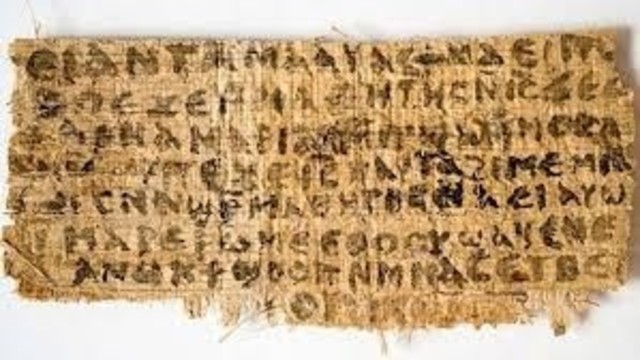 ⲉⲓ ⲁⲛ ⲧⲁⲙⲁⲁⲩ ⲁⲥϯ ⲛⲁⲉⲓ ⲡⲱ
ⲡⲉϫⲉ ⲙⲙⲁⲑⲏⲧⲏⲥ ⲛⲓⲥ ϫⲉ ⲥ
ⲁⲣⲛⲁ ⲙⲁⲣⲓⲁⲙ ⲙⲡϣⲁ ⲙⲙⲟⲥ ⲁ
ⲡⲉϫⲉ ⲓⲥ ⲛⲁⲩ ⲧⲁϩⲓⲙⲉ ⲙⲛ
ⲥⲛⲁϣⲣⲙⲁⲑⲏⲧⲏⲥ ⲛⲁⲉⲓ ⲁⲩⲱ
ⲙⲁⲣⲉⲣⲱⲙⲉ ⲉⲑⲟⲟⲩ ϣⲁϥⲉⲛⲉ
ⲁⲛⲟⲕ ϯϣⲟⲟⲡ ⲛⲙⲙⲁⲥ ⲉⲧⲃⲉ